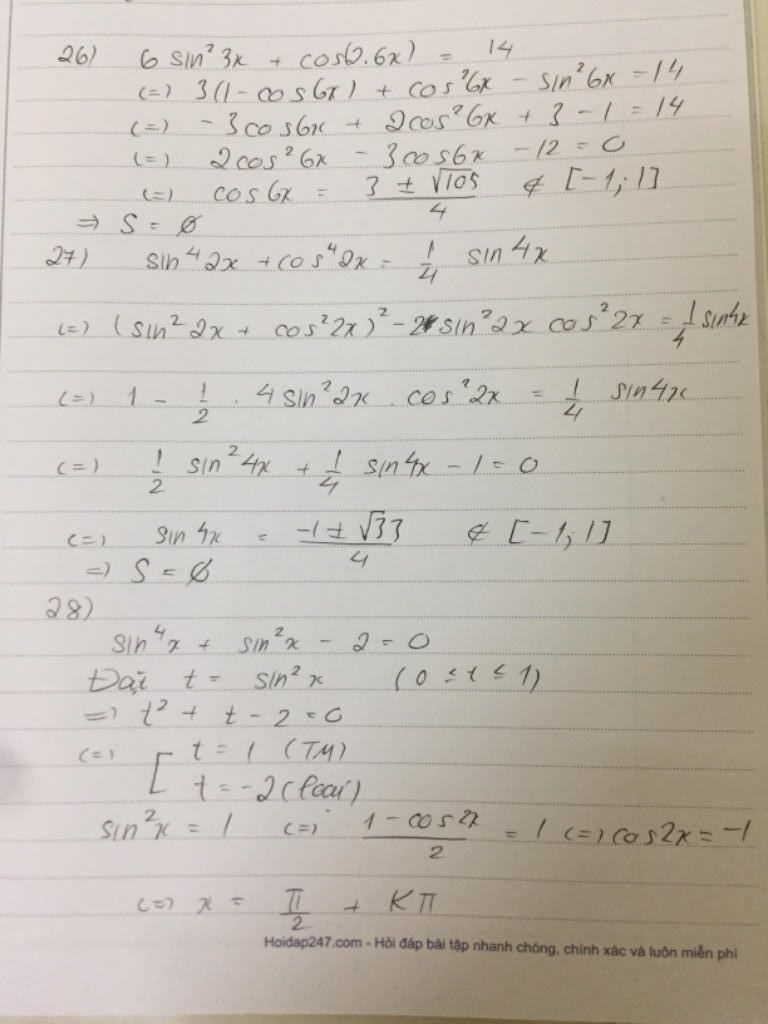 26) 6 sin²3x + cos(2.6x) = 14
(=) 3(1 - cos6x) + cos²6x - sin²6x = 14
(=) - 3cos6x + 2cos²6x + 3 - 1 = 14
(=) 2cos²6x - 3cos6x - 12 = 0
(=) cos6x = (3 ± √105)/4 ∉ [-1; 1]
=> S = ∅
27) sin⁴2x + cos⁴2x = 1/4 sin4x
(=) (sin²2x + cos²2x)² - 2 sin²2x cos²2x = 1/4 sin4x
(=) 1 - 1/2 . 4sin²2x . cos²2x = 1/4 sin4x
(=) 1/2 sin²4x + 1/4 sin4x - 1 = 0
(=) sin4x = (-1 ± √33)/4 ∉ [-1; 1]
=> S = ∅
28)
sin⁴x + sin²x - 2 = 0
Đặt t = sin²x (0 ≤ t ≤ 1)
=> t² + t - 2 = 0
(=) [ t = 1 (TM)
t = -2 (loại)
sin²x = 1 (=) (1 - cos2x)/2 = 1 (=) cos2x = -1
(=) x = π/2 + Kπ
Hoidap247.com - Hỏi đáp bài tập nhanh chóng, chính xác và luôn miễn phí